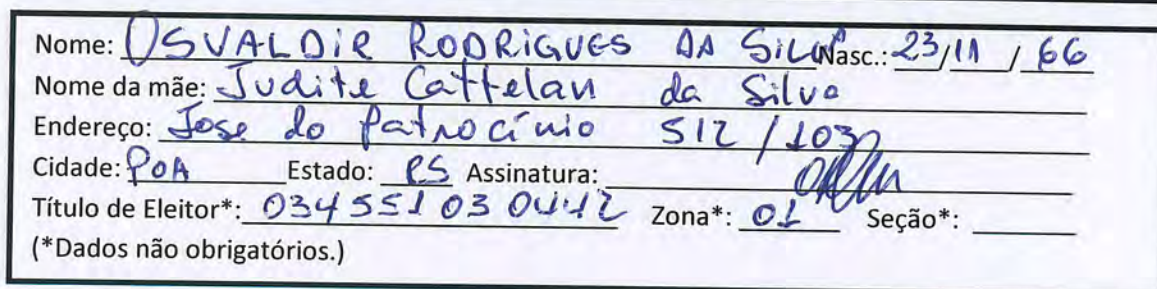 Nome: OSVALDIR RODRIGUES DA SILVA Nasc.: 23/11/66
Nome da mãe: Judite Cattelan da Silva
Endereço: Jose do Patrocínio 512/103
Cidade: POA Estado: RS Assinatura:
Título de Eleitor*: 034551030442 Zona*: 01 Seção*:
(*Dados não obrigatórios.)